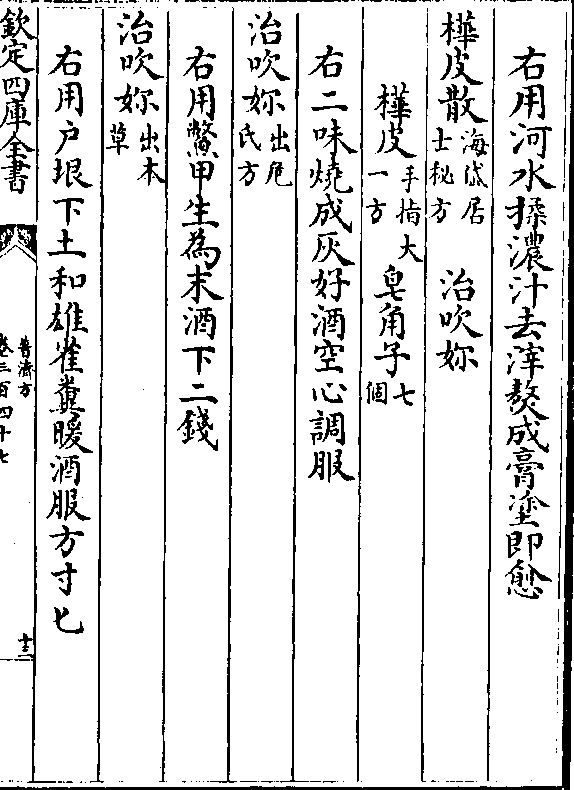 右用河水揉濃汁去滓熬成膏塗即愈
樺皮散海岱居士秘方　治吹妳
樺皮手指大一方　皂角子七個
右二味燒成灰好酒空心調服
治吹妳出危氏方
右用鱉甲生為末酒下二錢
治吹妳出本草
右用户垠下土和雄雀糞暖酒服方寸匕
欽定四庫全書
普濟方
卷三百四十七
十三